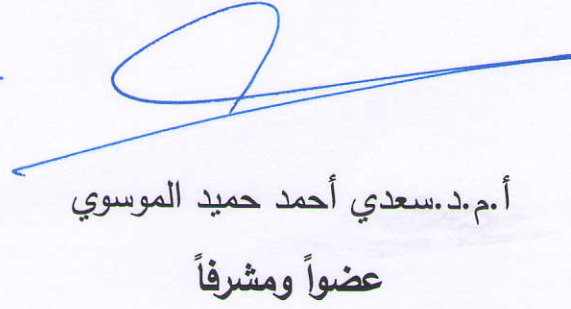 أ.م.د.سعدي أحمد حميد الموسوي
عضواً ومشرفاً